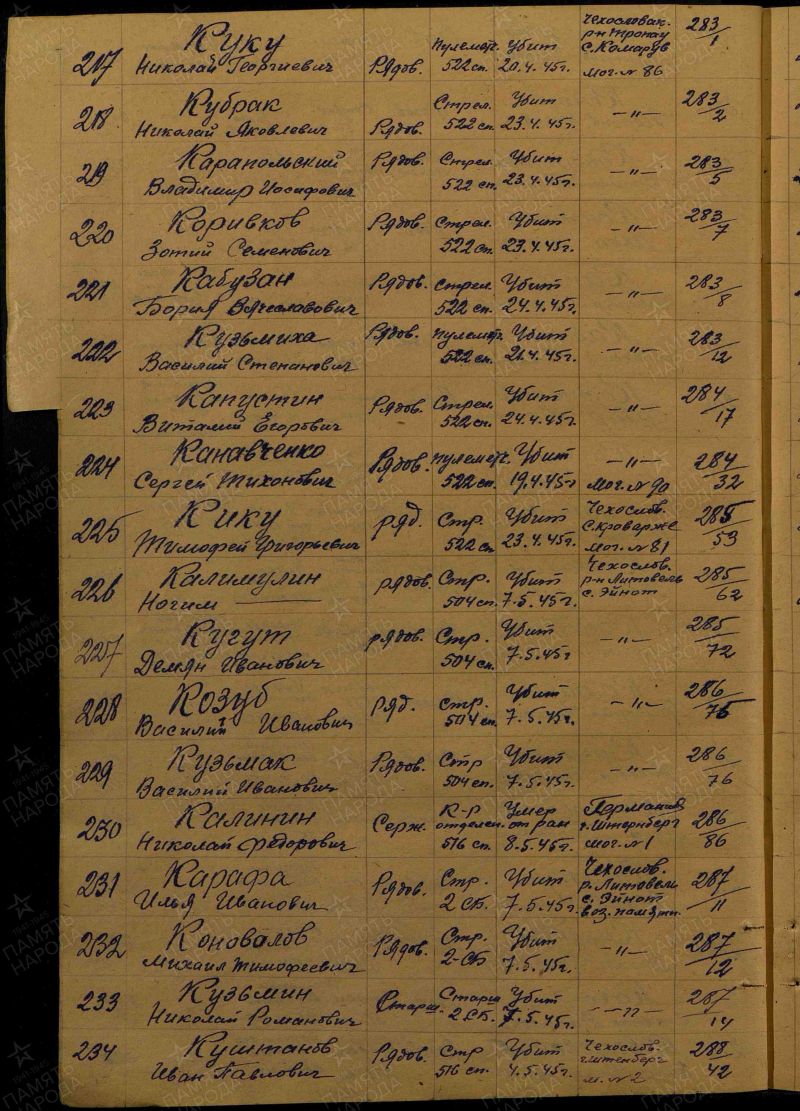 217 Куку Николай Георгиевич Рядов. Пулеметч. 522 сп. Убит 20.4.45г. Чехословак. р-н Тропау с. Комарув мог. № 86 283/1
218 Кубрак Николай Яковлевич Рядов. Стрел. 522 сп. Убит 23.4.45г. —"— 283/2
219 Карапольский Владимир Иосифович Рядов. Стрел. 522 сп. Убит 23.4.45г. —"— 283/5
220 Коривков Зотий Семенович Рядов. Стрел. 522 сп. Убит 23.4.45г. —"— 283/7
221 Кабузан Борис Вячеславович Рядов. Стрел. 522 сп. Убит 24.4.45г. —"— 283/8
222 Кузьмиха Василий Степанович Рядов. Пулеметч. 522 сп. Убит 21.4.45г. —"— 283/12
223 Капустин Виталий Егорович Рядов. Стрел. 522 сп. Убит 24.4.45г. —"— 284/17
224 Канавченко Сергей Тихонович Рядов. Пулеметч. 522 сп. Убит 19.4.45г. —"— мог. № 90 284/32
225 Кику Тимофей Григорьевич ряд. Стр. 522 сп Убит 23.4.45г. Чехослов. с. Кроварже мог. № 81 285/53
226 Калимулин Ногим — рядов. Стр. 504 сп. Убит 7.5.45г. Чехослов. р-н Литовель с. Эйнот 285/62
227 Кугут Демян Иванович рядов. Стр. 504 сп. Убит 7.5.45г —"— 285/72
228 Козуб Василий Иванович ряд. стр. 504 сп. Убит 7.5.45г. —"— 286/75
229 Кузьмак Василий Иванович Рядов. Стр 504 сп. Убит 7.5.45г. —"— 286/76
230 Калинин Николай Федорович Серж. К-р отделен. 576 сп. Умер от ран 8.5.45г. Германия г. Штернберг мог. № 1 286/86
231 Карафа Илья Иванович Рядов. Стр. 2 СБ. Убит 7.5.45г. Чехослов. р. Литовель с. Эйнот воз. памятн. 287/11
232 Коновалов Михаил Тимофеевич Рядов. Стр. 2-СБ Убит 7.5.45г. —"— 287/12
233 Кузьмин Николай Романович Старш. Старш 2 СБ. Убит 7.5.45г. —"— 287/14
234 Куштанов Иван Павлович Рядов. Стр 576 сп. Убит 4.5.45г. Чехослов. г. Штенберг м. № 2 288/42
ПАМЯТЬ НАРОДА